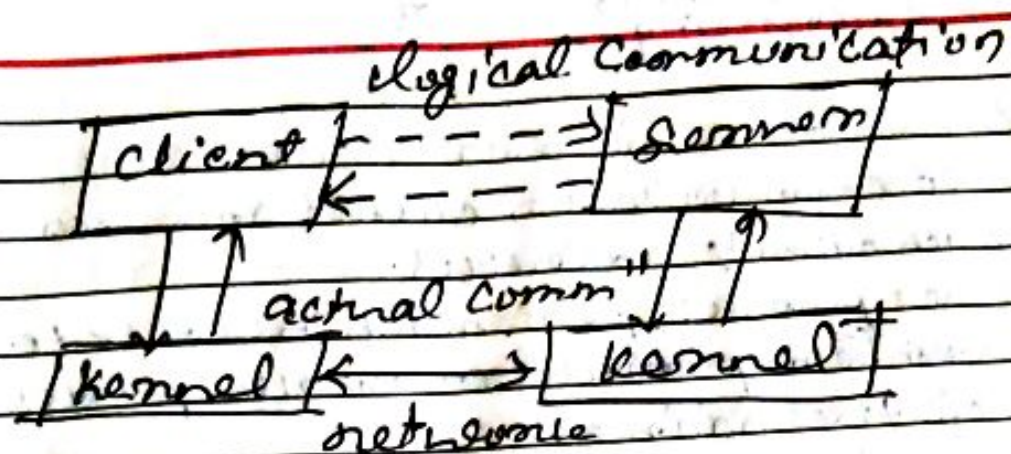 Logical Communication
Client Server
actual commⁿ
Kernel Kernel
network